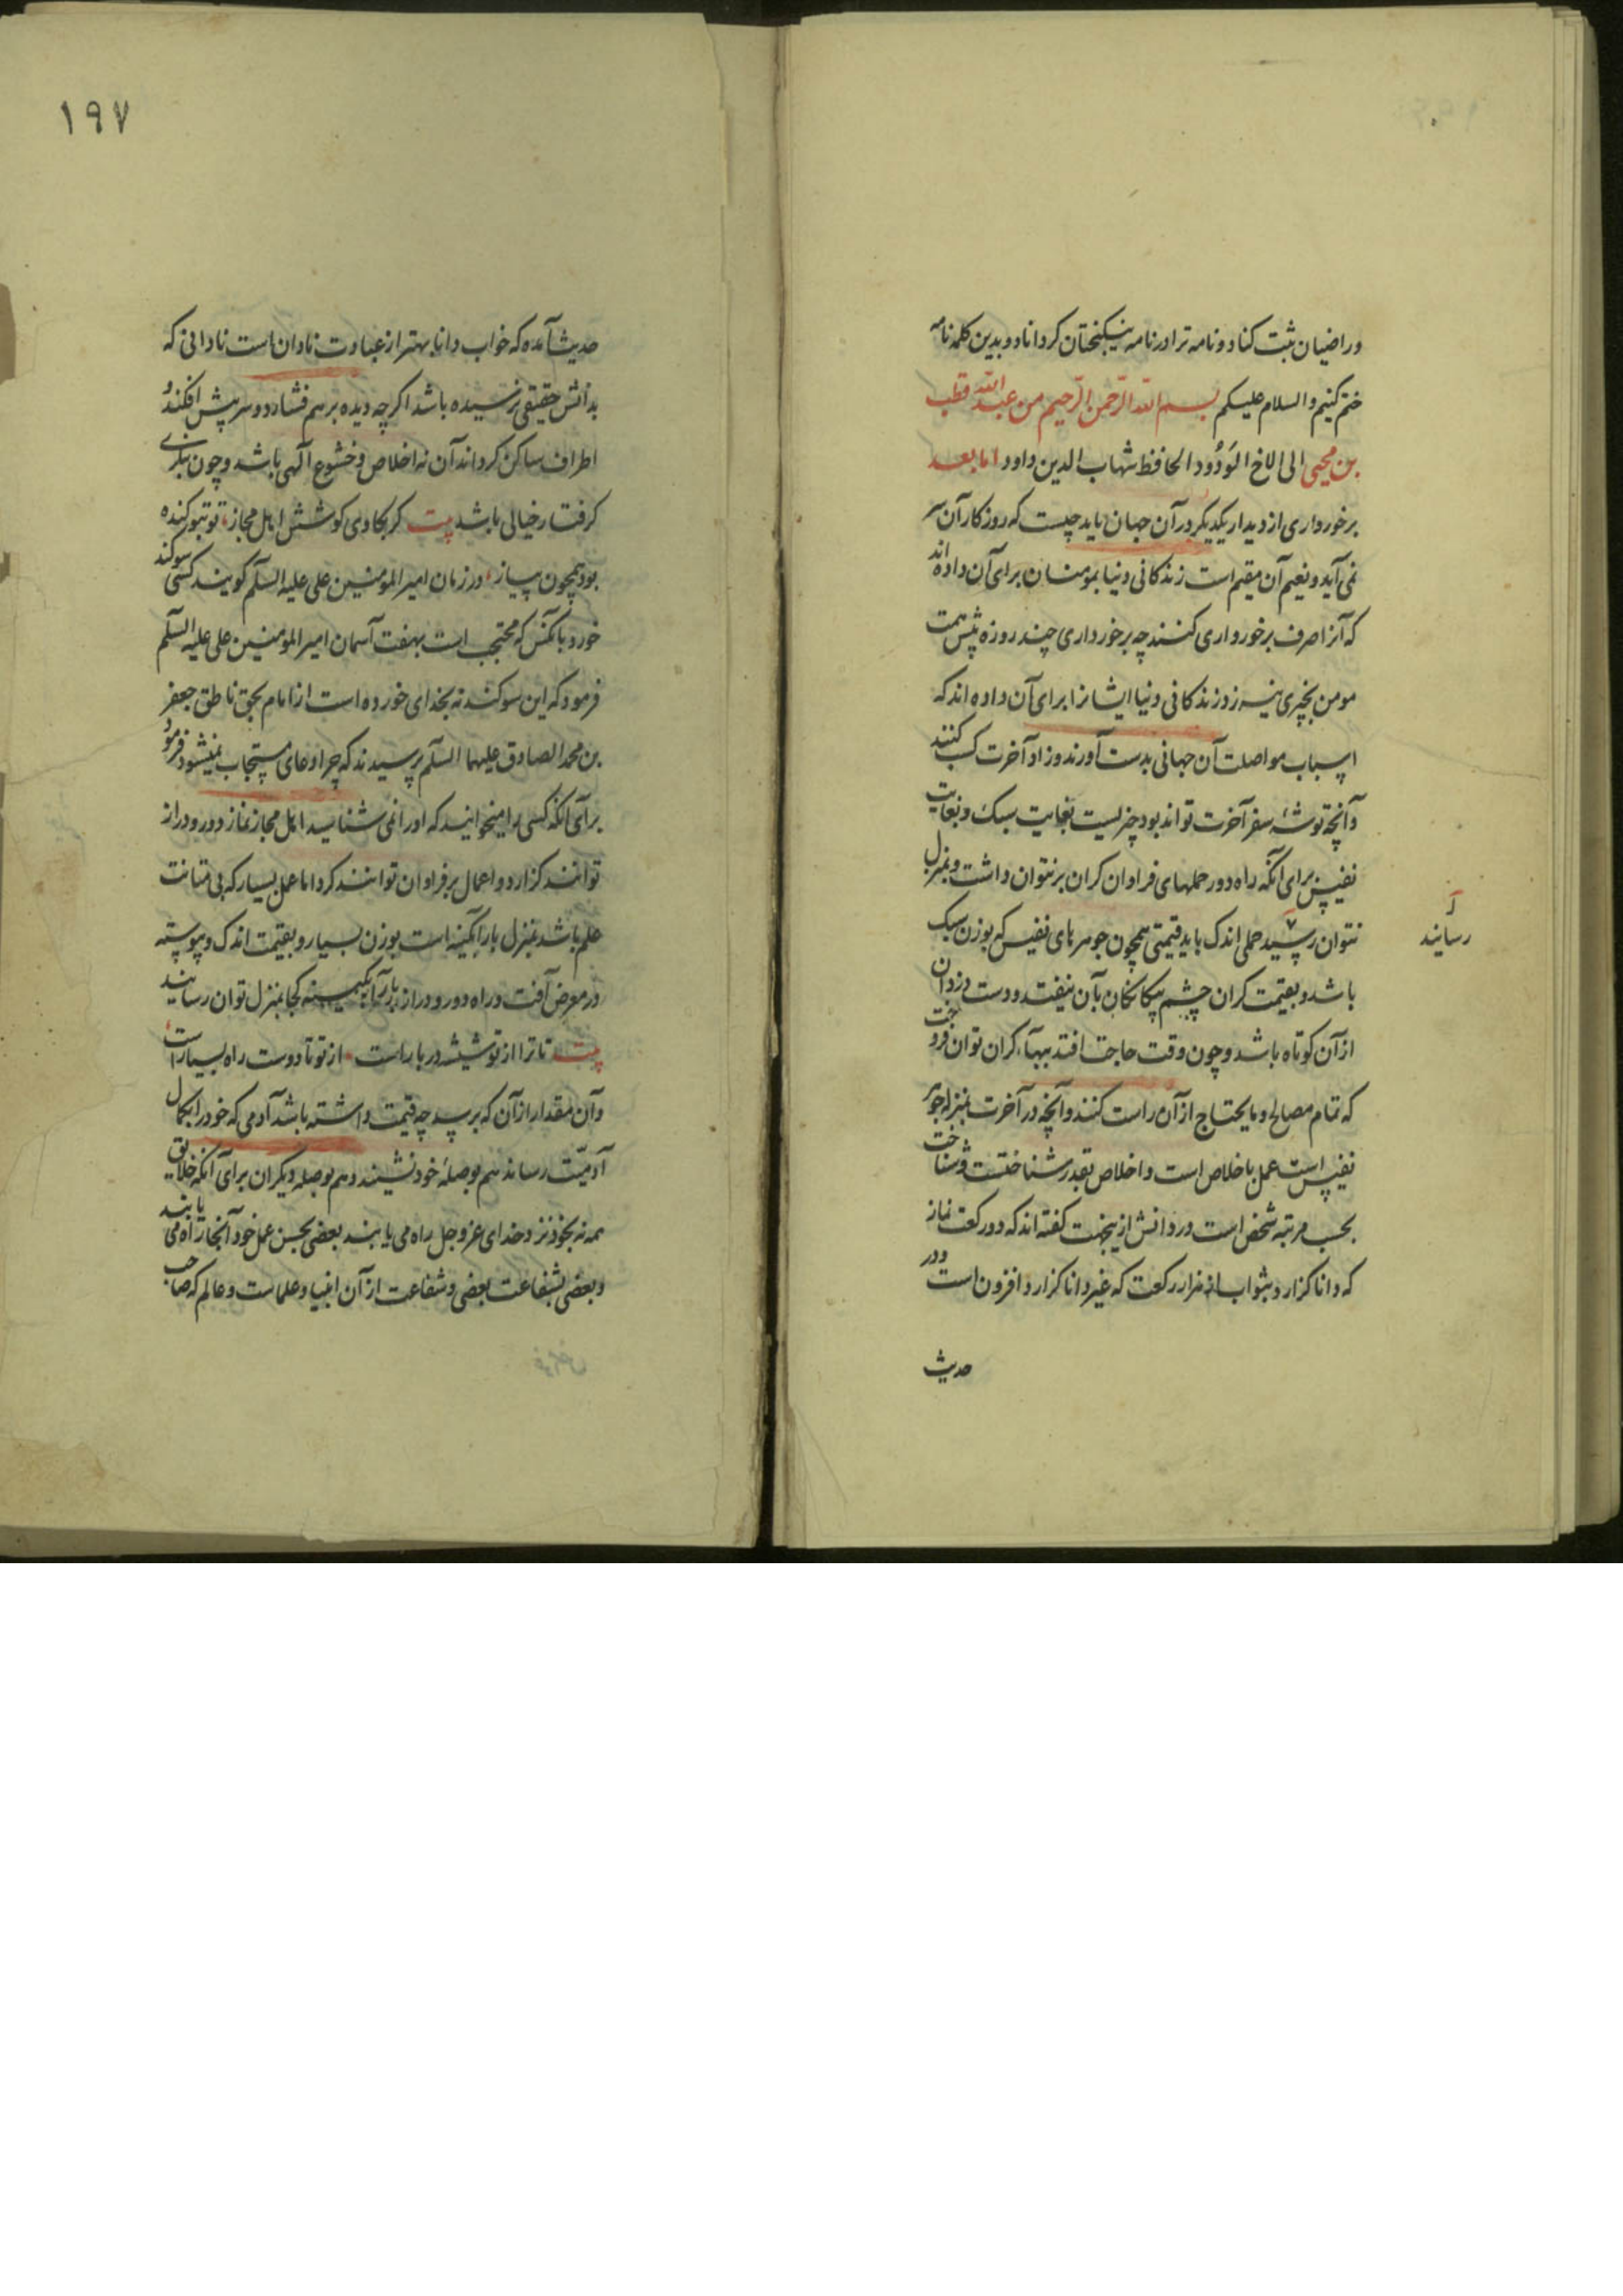 وراضیان ثبت کناد و نامه ترا در نامه نیکبختان کرداناد و بدین کلمه نامه
ختم کنیم والسلام علیکم بسم الله الرحمن الرحیم من عبد الله قطب
بن محیی الی الاخ الوَدُود الحافظ شهاب الدین داود اما بعد
برخورداری از دیدار یکدیکر در آن جهان باید جست که روزکار آن بسر
نمی آید و نعیم آن مقیم است زندکانی دنیا بمومنان برای آن داده اند
که آنرا صرف برخورداری کنند چه برخورداری چند روزه پیش همت
مومن بچیزی نیرزد زندکانی دنیا ایشانرا برای آن داده اند که
اسباب مواصلت آن جهانی بدست آورند و زاد آخرت کسب کنند
و آنچه توشهٔ سفر آخرت تواند بود چیزیست بغایت سبک و بغایت
نفیس برای آنکه راه دور حملهای فراوان کران بر نتوان داشت و بمنزل
نتوان رسید حملی اندک باید قیمتی همچون جوهرهای نفیس که بوزن سبک
رسانید
باشد و بقیمت کران چشم بیکانکان بآن نیفتد و دست دزدان
از آن کوتاه باشد و چون وقت حاجت افتد ببهاء کران توان فروخت
که تمام مصالح و مایحتاج از آن راست کنند و آنچه در آخرت بمنزله جوهر
نفیس است عمل باخلاص است و اخلاص بقدر شناختست و شناخت
بحسب مرتبه شخص است در دانش ازینجهت کفته اند که دو رکعت نماز
که دانا کزارد بثواب از هزار رکعت که غیر دانا کزارد افزون است و در
حدیث
۱۹۷
حدیث آمده که خواب دانا بهتر از عبادت نادان است نادانی که
بدانش حقیقی نرسیده باشد اکر چه دیده بر هم فشارد و سر پیش افکند و
اطراف ساکن کرداند آن نه اخلاص و خشوع الهی باشد و چون بنکری
کرفتار خیالی باشد بیت کر بکاوی کوشش اهل مجاز تو بتو کنده
بود همچون پیاز در زمان امیر المومنین علی علیه السلم کویند کسی سوکند
خورد بآنکس که محتجب است بهفت آسمان امیر المومنین علی علیه السلم
فرمود که این سوکند نه بخدای خورده است از امام بحق ناطق جعفر
بن محمد الصادق علیهما السلم پرسیدند که چرا دعای مستجاب نمیشود فرمود
برای آنکه کسی را میخوانید که او را نمی شناسید اهل مجاز نماز دور و دراز
توانند کزارد و اعمال بر فراوان توانند کرد اما عمل بسیار که بی متانت
علم باشد بمنزل بار آبکینه است بوزن بسیار و بقیمت اندک و پیوسته
در معرض آفت و راه دور و دراز بار آبکینه کجا بمنزل توان رسانید
بیت تا ترا از تو شیشه در بار است از تو تا دوست راه بسیار است
و آن مقدار از آن که برسد چه قیمت داشته باشد آدمی که خود را بکمال
آدمیّت رساند هم بوصلهٔ خود نشیند و هم بوصله دیکران برای آنکه خلایق
همه نه بخود نزد خدای عز و جل راه می یابند بعضی بحسن عمل خود آنجا راه می یابند
و بعضی بشفاعت بعضی و شفاعت از آن انبیا و علماست و عالم که صاحب